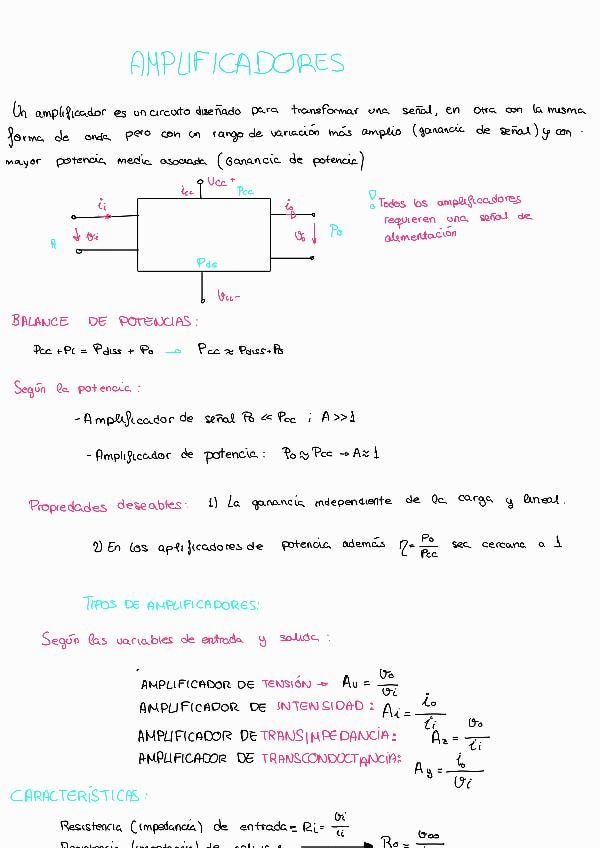 AMPLIFICADORES
Un amplificador es un circuito diseñado para transformar una señal, en otra con la misma
forma de onda pero con un rango de variación más amplio (ganancia de señal) y con
mayor potencia media asociada (Ganancia de potencia)
Vcc +
icc Pcc
ii
io
A vi
vo Po
Pdis
Vcc-
Todos los amplificadores
requieren una señal de
alimentación
BALANCE DE POTENCIAS:
Pcc + Pi = Pdiss + Po → Pcc ≈ Pdiss+Po
Según la potencia:
- Amplificador de señal Po << Pcc ; A >>1
- Amplificador de potencia: Po ≈ Pcc → A ≈ 1
Propiedades deseables: 1) La ganancia independiente de la carga y lineal.
2) En los aplificadores de potencia además η = Po/Pcc sea cercana a 1
TIPOS DE AMPLIFICADORES:
Según las variables de entrada y salida:
AMPLIFICADOR DE TENSIÓN → Av = vo/vi
AMPLIFICADOR DE INTENSIDAD: Ai = io/ii
AMPLIFICADOR DE TRANSIMPEDANCIA: Az = vo/ii
AMPLIFICADOR DE TRANSCONDUCTANCIA: Ay = io/vi
CARACTERÍSTICAS:
Resistencia (impedancia) de entrada = Ri = vi/ii